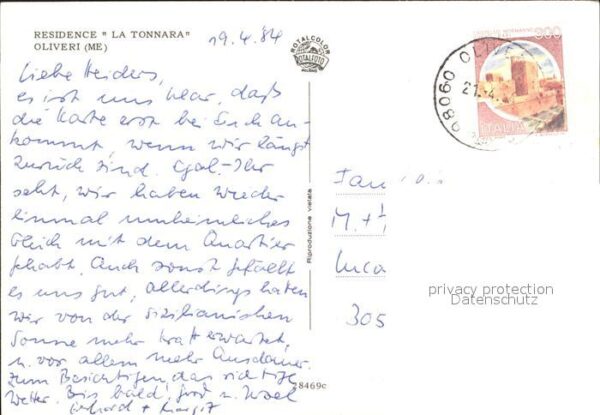 RESIDENCE " LA TONNARA"
OLIVERI (ME)
19.4.84
ROTALCOLOR
ROTALFOTO
300
ITALIA
98060 OLI
21.4.
Liebe Heiders,
es ist uns klar, daß
die Karte erst bei Euch an-
kommt, wenn wir längst
zurück sind. Egal - Ihr
seht, wir haben wieder
einmal unheimliches
Glück mit dem Quartier
gehabt. Auch sonst gefällt
es uns gut, allerdings haben
wir von der sizilianischen
Sonne mehr Kraft erwartet,
u. vor allem mehr Ausdauer.
Zum Besichtigen das richtige
Wetter. Bis bald!
Gerhard + Margit
Fam
M. +
Luca
305
Riproduzione vietata
28469c
privacy protection
Datenschutz